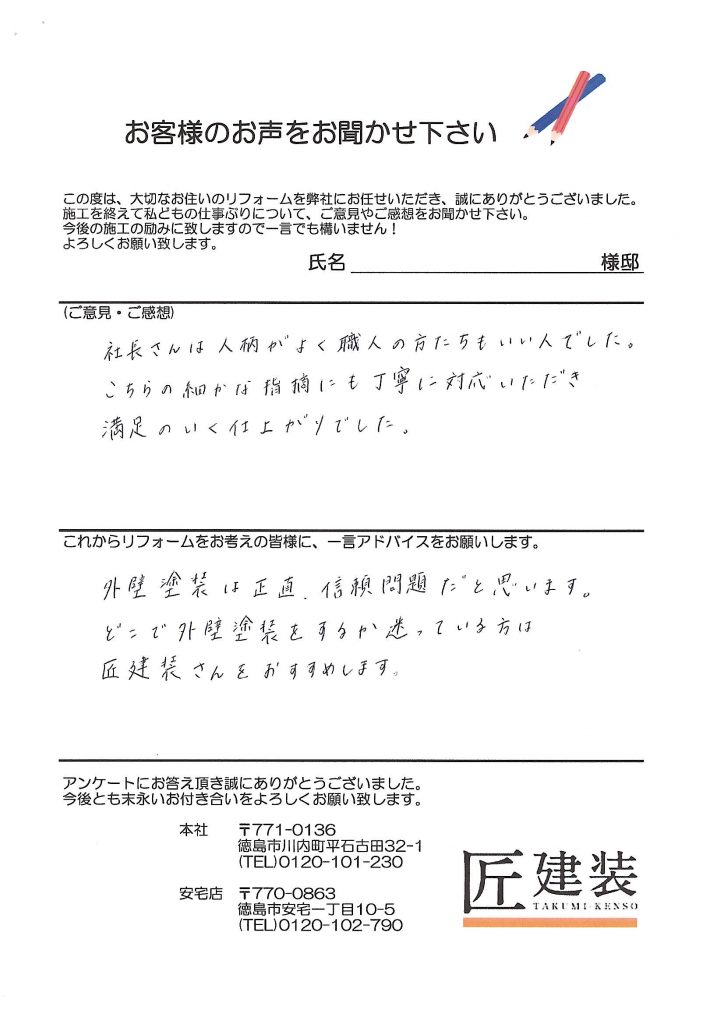 お客様のお声をお聞かせ下さい
この度は、大切なお住いのリフォームを弊社にお任せいただき、誠にありがとうございました。
施工を終えて私どもの仕事ぶりについて、ご意見やご感想をお聞かせ下さい。
今後の施工の励みに致しますので一言でも構いません！
よろしくお願い致します。
氏名 様邸
(ご意見・ご感想)
社長さんは人柄がよく職人の方たちもいい人でした。
こちらの細かな指摘にも丁寧に対応いただき
満足のいく仕上がりでした。
これからリフォームをお考えの皆様に、一言アドバイスをお願いします。
外壁塗装は正直、信頼問題だと思います。
どこで外壁塗装をするか迷っている方は
匠建装さんをおすすめします。
アンケートにお答え頂き誠にありがとうございました。
今後とも末永いお付き合いをよろしくお願い致します。
本社 〒771-0136
徳島市川内町平石古田32-1
(TEL)0120-101-230
安宅店 〒770-0863
徳島市安宅一丁目10-5
(TEL)0120-102-790
匠建装
TAKUMI-KENSO